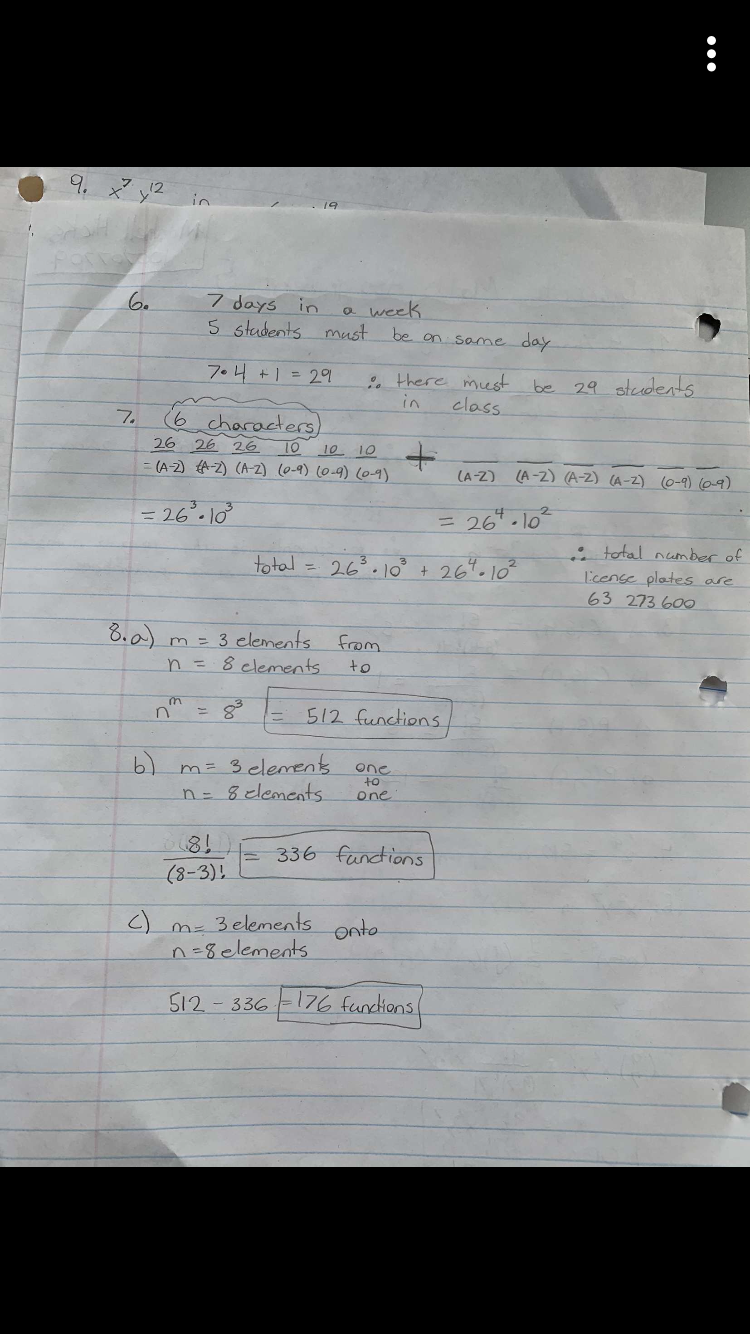 9. x⁷ y¹² in 19
6. 7 days in a week
5 students must be on same day
7·4 + 1 = 29 ∴ there must be 29 students
in class
7. (6 characters)
26 26 26 10 10 10
= (A-Z) (A-Z) (A-Z) (0-9) (0-9) (0-9) + (A-Z) (A-Z) (A-Z) (A-Z) (0-9) (0-9)
= 26³·10³ = 26⁴·10²
total = 26³·10³ + 26⁴·10² ∴ total number of
license plates are
63 273 600
8.a) m = 3 elements from
n = 8 elements to
nᵐ = 8³ = 512 functions
b) m = 3 elements one
to
n = 8 elements one
8!
/(8-3)! = 336 functions
c) m = 3 elements onto
n = 8 elements
512 - 336 = 176 functions